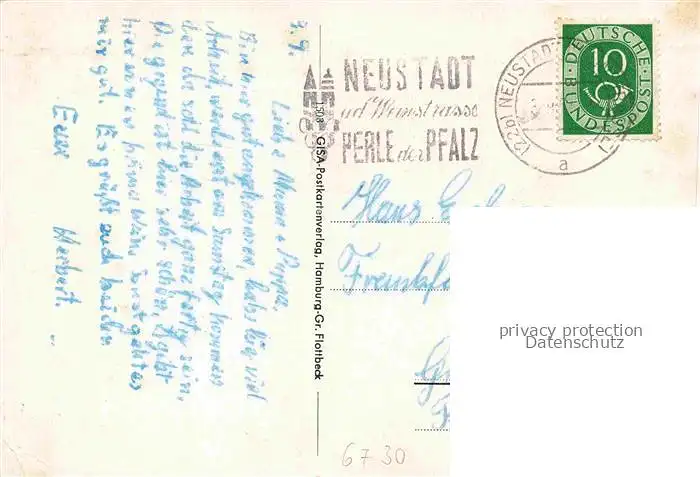 7. 9.
Liebe Mama + Pappa.
Bin hier gut angekommen, habe hier viel
Arbeit, werde erst am Samstag kommen
den da soll die Arbeit ganz fertig sein.
Die gegend ist hier sehr schön, es gibt
hier wie immer Wein sonst geht es
mir gut. Es grüßt euch beide
Euer
Herbert.
1508 GISA-Postkartenverlag, Hamburg-Gr. Flottbeck
NEUSTADT
a/d Weinstrasse
PERLE der PFALZ
(22b) NEUSTADT
a
DEUTSCHE
BUNDESPOST
10
Hans
privacy protection
Datenschutz
6730